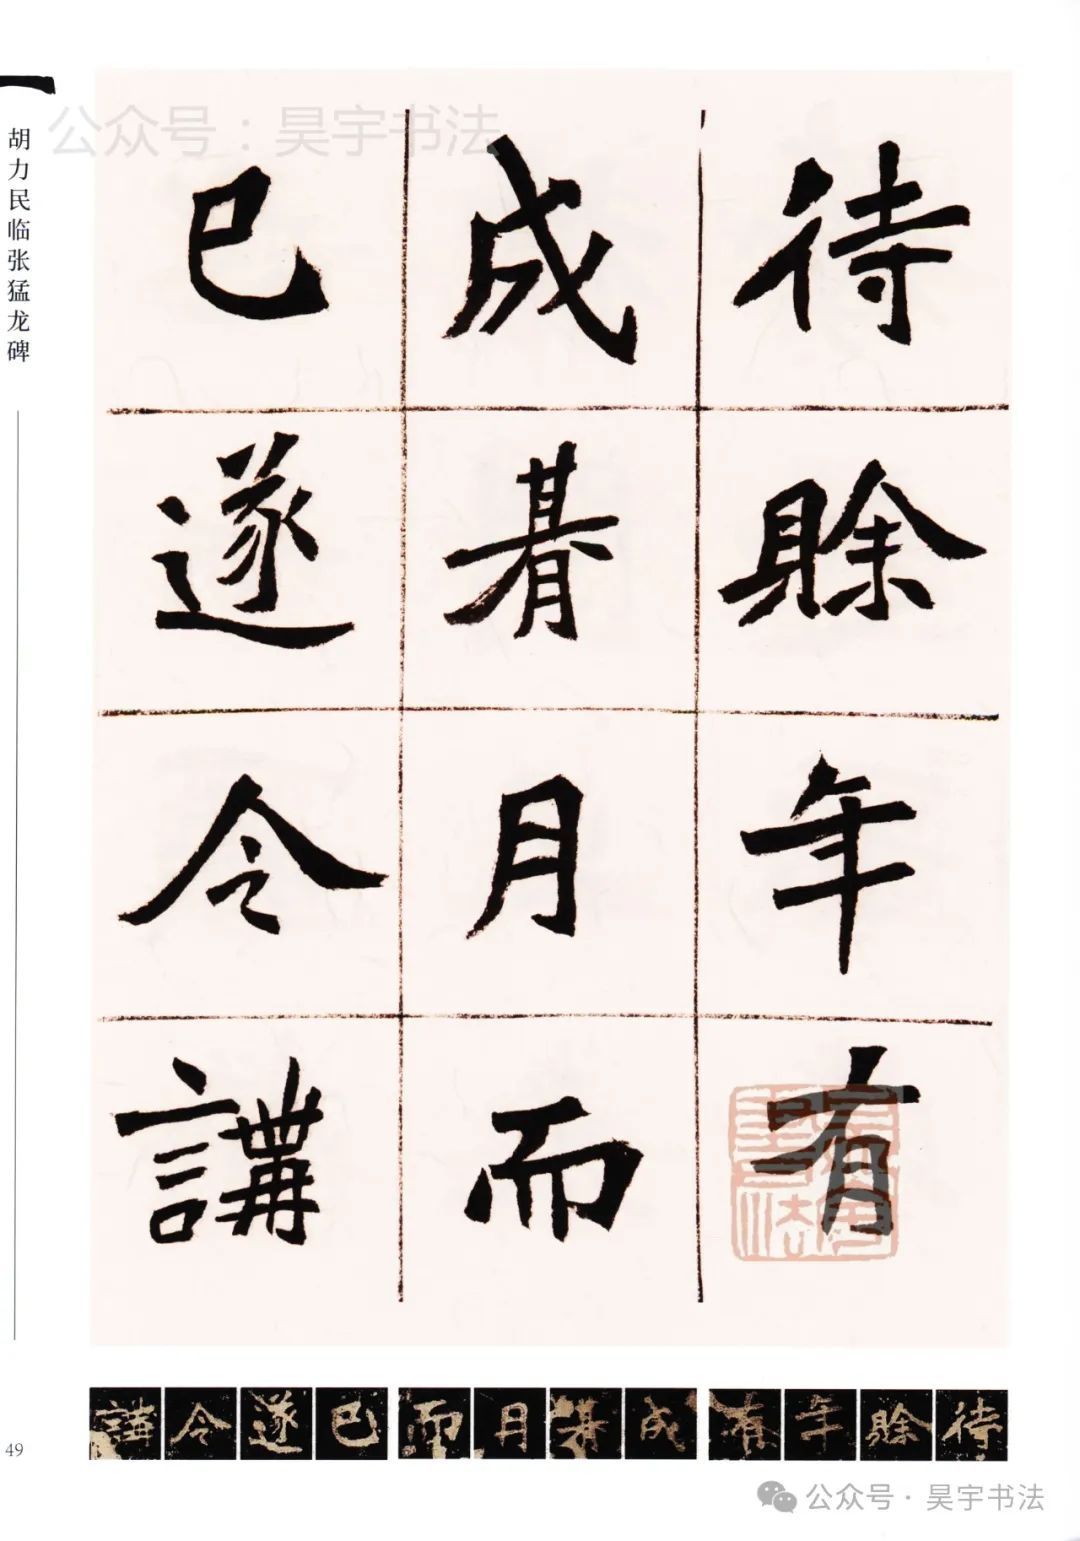 公众号：昊宇书法
胡力民临张猛龙碑
待賖年有
成朞月而
已遂令講
講令遂已而月朞成有年賖待
49
公众号·昊宇书法